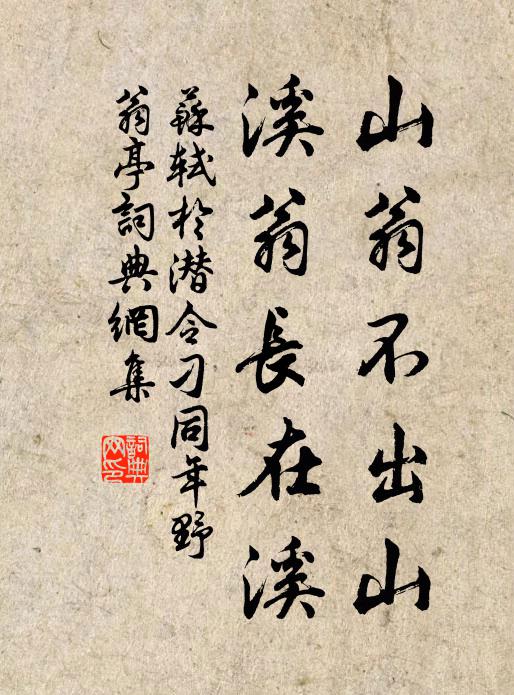 山翁不出山
溪翁長在溪
蘇軾於潛令刁同年野
翁亭詞典網集
詞典网印